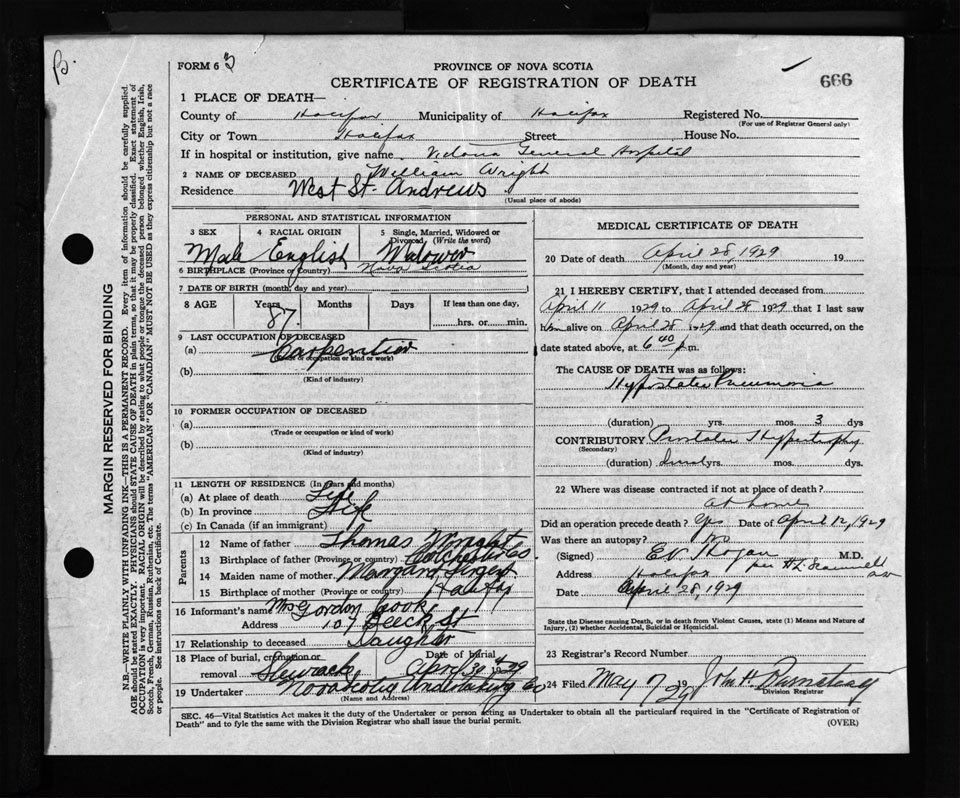 B.
FORM 6 3
PROVINCE OF NOVA SCOTIA
CERTIFICATE OF REGISTRATION OF DEATH
666
1 PLACE OF DEATH—
County of Halifax Municipality of Halifax Registered No.
(For use of Registrar General only)
City or Town Halifax Street House No.
If in hospital or institution, give name Victoria General Hospital
2 NAME OF DECEASED William Wright
Residence West St. Andrews
(Usual place of abode)
PERSONAL AND STATISTICAL INFORMATION
3 SEX 4 RACIAL ORIGIN 5 Single, Married, Widowed or Divorced (Write the word)
Male English Widower
6 BIRTHPLACE (Province or Country) Nova Scotia
7 DATE OF BIRTH (month, day and year)
8 AGE Years Months Days If less than one day,
87 hrs. or min.
9 LAST OCCUPATION OF DECEASED
(a) Carpenter
(Trade or occupation or kind of work)
(b)
(Kind of industry)
10 FORMER OCCUPATION OF DECEASED
(a)
(Trade or occupation or kind of work)
(b)
(Kind of industry)
11 LENGTH OF RESIDENCE (In years and months)
(a) At place of death Life
(b) In province Life
(c) In Canada (if an immigrant)
Parents
12 Name of father Thomas Wright
13 Birthplace of father (Province or country) Colchester Co
14 Maiden name of mother Margaret
15 Birthplace of mother (Province or country) Halifax
16 Informant's name Mrs Gordon Cook
Address 107 Beech St
17 Relationship to deceased Daughter
18 Place of burial, cremation or removal Date of burial
Shewiacke April 30 1929
19 Undertaker Nova Scotia Undertaking Co
(Name and Address)
MEDICAL CERTIFICATE OF DEATH
20 Date of death April 28, 1929 19
(Month, day and year)
21 I HEREBY CERTIFY, that I attended deceased from
April 11 1929 to April 28 1929 that I last saw
him alive on April 28 1929 and that death occurred, on the
date stated above, at 6 40 p.m.
The CAUSE OF DEATH was as follows:
Hypostatic Pneumonia
(duration) yrs. mos. 3 dys
CONTRIBUTORY Prostatic Hypertrophy
(Secondary)
(duration) Several yrs. mos. dys.
22 Where was disease contracted if not at place of death?
at home
Did an operation precede death? Yes Date of April 12, 1929
Was there an autopsy? No
(Signed) E V Hogan M.D.
Address Halifax per
Date April 28, 1929
State the Disease causing Death, or in death from Violent Causes, state (1) Means and Nature of Injury, (2) whether Accidental, Suicidal or Homicidal.
23 Registrar's Record Number
24 Filed May 7 1929 John H.
Division Registrar
SEC. 46—Vital Statistics Act makes it the duty of the Undertaker or person acting as Undertaker to obtain all the particulars required in the "Certificate of Registration of
Death" and to fyle the same with the Division Registrar who shall issue the burial permit.
(OVER)
MARGIN RESERVED FOR BINDING
N.B.—WRITE PLAINLY WITH UNFADING INK—THIS IS A PERMANENT RECORD. Every item of information should be carefully supplied.
AGE should be stated EXACTLY. PHYSICIANS should STATE CAUSE OF DEATH in plain terms, so that it may be properly classified. Exact statement of
OCCUPATION is very important. RACIAL ORIGIN will be described by stating to what people or tongue the deceased person belonged whether English, Irish,
Scotch, French, German, Russian, Ruthenian, etc. The terms "AMERICAN" OR "CANADIAN" MUST NOT BE USED as they express citizenship but not a race
or people. See instructions on back of Certificate.